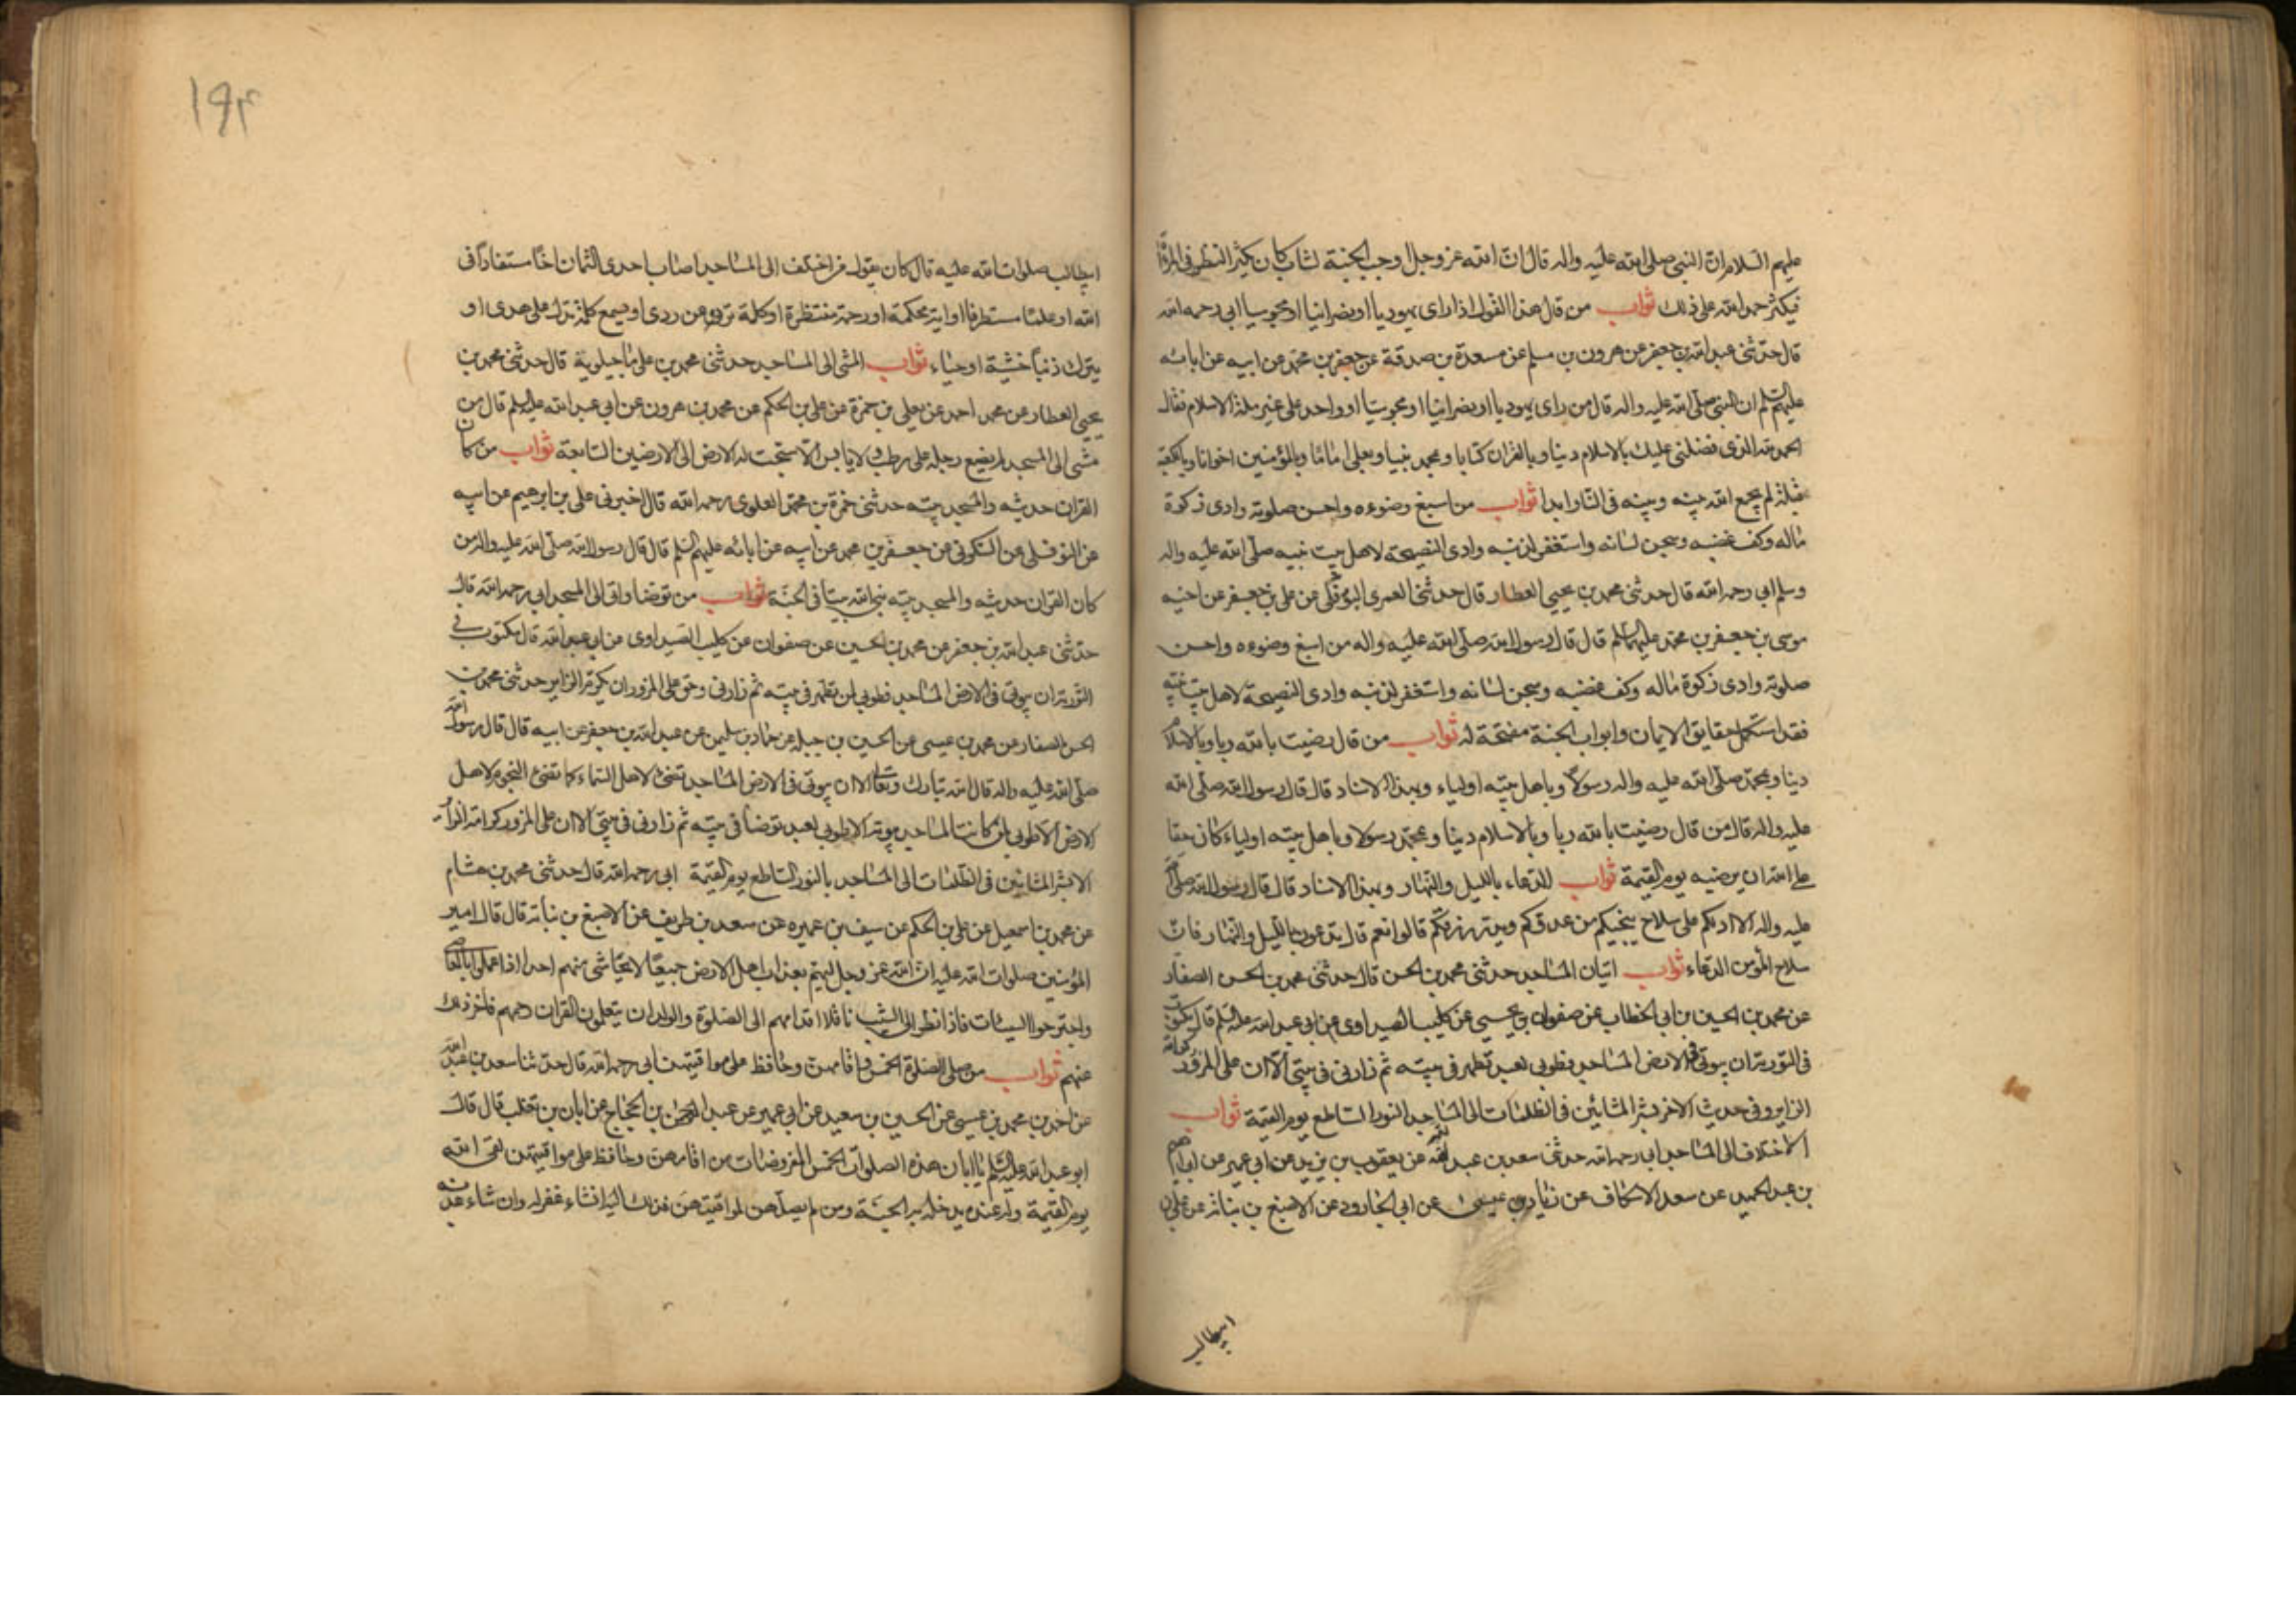 عليهم السلام ان النبى صلى الله عليه واله قال ان الله عز وجل اوجب الجنة لشاب كان يكثر النظر فى المرآة
فيكثر حمد الله على ذلك ثواب من قال هذا القول اذا راى يهوديا او نصرانيا او مجوسيا ابى رحمه الله
قال حدثنى عبد الله بن جعفر عن هرون بن مسلم عن مسعدة بن صدقة عن جعفر بن محمد عن ابيه عن ابائه
عليهم السلم ان النبى صلى الله عليه واله قال من راى يهوديا او نصرانيا او مجوسيا او واحد على غير ملة الاسلام فقال
الحمد لله الذى فضلنى عليك بالاسلام دينا وبالقران كتابا وبمحمد نبيا وبعلى اماما وبالمؤمنين اخوانا وبالكعبة
قبلة لم يجمع الله بينه وبينه فى النار ابدا ثواب من اسبغ وضوءه واحسن صلوته وادى زكوة
ماله وكف غضبه وسجن لسانه واستغفر لذنبه وادى النصيحة لاهل بيت نبيه صلى الله عليه واله
وسلم ابى رحمه الله قال حدثنى محمد بن يحيى العطار قال حدثنى العمرى البوفكى عن على بن جعفر عن اخيه
موسى بن جعفر بن محمد عليهما السلم قال قال رسول الله صلى الله عليه واله من اسبغ وضوءه واحسن
صلوته وادى زكوة ماله وكف غضبه وسجن لسانه واستغفر لذنبه وادى النصيحة لاهل بيت نبيه
فقد استكمل حقايق الايمان وابواب الجنة مفتحة له ثواب من قال رضيت بالله ربا وبالاسلام
دينا وبمحمد صلى الله عليه واله رسولا وباهل بيته اولياء وبهذا الاسناد قال قال رسول الله صلى الله
عليه واله قال من قال رضيت بالله ربا وبالاسلام دينا وبمحمد رسولا وباهل بيته اولياء كان حقا
على الله ان يرضيه يوم القيمة ثواب الدعاء بالليل والنهار وبهذا الاسناد قال قال رسول الله صلى الله
عليه واله الا ادلكم على سلاح ينجيكم من عدوكم ويدر رزقكم قالوا نعم قال تدعون بالليل والنهار فان
سلاح المؤمن الدعاء ثواب اتيان المساجد حدثنى محمد بن الحسن قال حدثنى محمد بن الحسن الصفار
عن محمد بن الحسين بن ابى الخطاب عن صفوان بن يحيى عن كليب الصيداوى عن ابى عبد الله عليه السلم قال مكتوب
فى التورية ان بيوتى فى الارض المساجد فطوبى لعبد تطهر فى بيته ثم زارنى فى بيتى الا ان على المزور كرامة
الزاير وفى حديث الاخر بشر المشائين فى الظلمات الى المساجد بالنور الساطع يوم القيمة ثواب
الاختلاف الى المساجد ابى رحمه الله حدثنى سعد بن عبد الله عن يعقوب بن يزيد عن ابى عمير عن ابراهيم
بن عبد الحميد عن سعد الاسكاف عن زياد بن عيسى عن ابى الجارود عن الاصبغ بن نباتة عن على بن
ابيطالب
۱۹۴
ابيطالب صلوات الله عليه قال كان يقول من اختلف الى المساجد اصاب احدى الثمان اخا مستفادا فى
الله او علما مستطرفا او اية محكمة او رحمة منتظرة او كلمة ترده عن ردى او يسمع كلمة تدله على هدى او
يترك ذنبا خشية او حياء ثواب المشى الى المساجد حدثنى محمد بن على ماجيلوية قال حدثنى محمد بن
يحيى العطار عن محمد احمد عن يعلى بن حمزة عن على بن الحكم عن محمد بن هرون عن ابى عبد الله عليه السلم قال من
مشى الى المسجد لم يضع رجله على رطب ولا يابس الا سبحت له الارض الى الارضين السابعة ثواب من كان
القران حديثه والمسجد بيته حدثنى حمزة بن محمد العلوى رحمه الله قال اخبرنى على بن ابرهيم عن ابيه
عن النوفلى عن السكونى عن جعفر بن محمد عن ابيه عن ابائه عليهم السلم قال قال رسول الله صلى الله عليه واله من
كان القران حديثه والمسجد بيته بنى الله بيتا فى الجنة ثواب من توضا واتى الى المسجد ابى رحمه الله قال
حدثنى عبد الله بن جعفر عن محمد بن الحسين عن صفوان عن كليب الصيداوى عن ابى عبد الله قال مكتوب فى
التورية ان بيوتى فى الارض المساجد فطوبى لمن تطهر فى بيته ثم زارنى وحق على المزور ان يكرم الزاير حدثنى محمد بن
الحسن الصفار عن محمد بن عيسى عن الحسين بن جبلة عن حماد بن سليمن عن عبد الله بن جعفر عن ابيه قال قال رسول الله
صلى الله عليه واله قال الله تبارك وتعالى الا ان بيوتى فى الارض المساجد تضئ لاهل السماء كما تضئ النجوم لاهل
الارض الا طوبى لمن كانت المساجد بيوته الا طوبى لعبد توضا فى بيته ثم زارنى فى بيتى الا ان على المزور كرامة الزائر
الا بشر المشائين فى الظلمات الى المساجد بالنور الساطع يوم القيمة ابى رحمه الله قال حدثنى محمد بن هشام
عن محمد بن اسمعيل عن على بن الحكم عن سيف بن عميره عن سعد بن طريف عن الاصبغ بن نباتة قال قال امير
المؤمنين صلوات الله عليه ان الله عز وجل ليهتم بعذاب اهل الارض جميعا لا يتحاشى منهم احدا اذا عملوا بالمعاصى
واجترحوا السيئات فاذا نظر الى الشيب ناقلا اقدامهم الى الصلوة والولدان يتعلمون القران رحمهم فاخر ذلك
عنهم ثواب من صلى الصلوة الخمس واقامهن وحافظ على مواقيتهن ابى رحمه الله قال حدثنا سعد بن عبد الله
عن احمد بن محمد بن عيسى عن الحسين بن سعيد عن ابى عمير عن عبد الرحمن بن الحجاج عن ابان بن تغلب قال قال
ابو عبد الله عليه السلم يا ابان هذه الصلوات الخمس المفروضات من اقامهن وحافظ على مواقيتهن لقى الله
يوم القيمة وله عنده عهد يدخله به الجنة ومن لم يصلهن لمواقيتهن فذلك اليه انشاء غفر له وان شاء عذبه